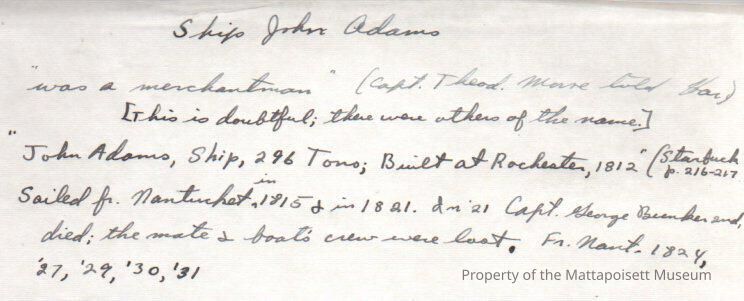 Ship John Adams
"was a merchantman" (Capt. Theod. told
[This is doubtful; there were others of the name.]
"John Adams, Ship, 296 Tons; Built at Rochester, 1812" (Starbuck
p. 216-217
Sailed fr. Nantucket, in 1815 & in 1821. In '21 Capt. George Bunker
died; the mate & boat's crew were lost. Fr. Nant. 1824,
'27, '29, '30, '31
Property of the Mattapoisett Museum